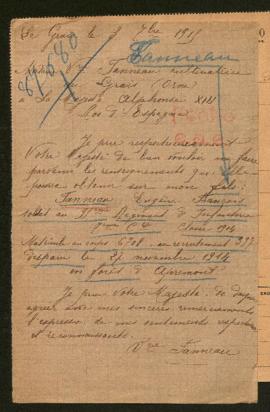 Le 7bre 1915
Tanneau
87.080
Madame Vve Tanneau cultivatrice
(Orne)
à Sa Majesté Alphonse XIII
Roi d'Espagne
Je prie respectueusement
Votre Majesté de bien vouloir me faire
parvenir les renseignements qu'Elle
pourra obtenir sur mon fils:
Tanneau Eugène François
soldat au Régiment d'Infanterie
Cie Classe 1914
Matricule au corps 6708, au recrutement 397
disparu le 27 novembre 1914
en forêt d'Apremont
Je prie Votre Majesté de
agréer avec mes sincères remerciements
l'expression de mes sentiments respectueux
et reconnaissants.
Vve Tanneau